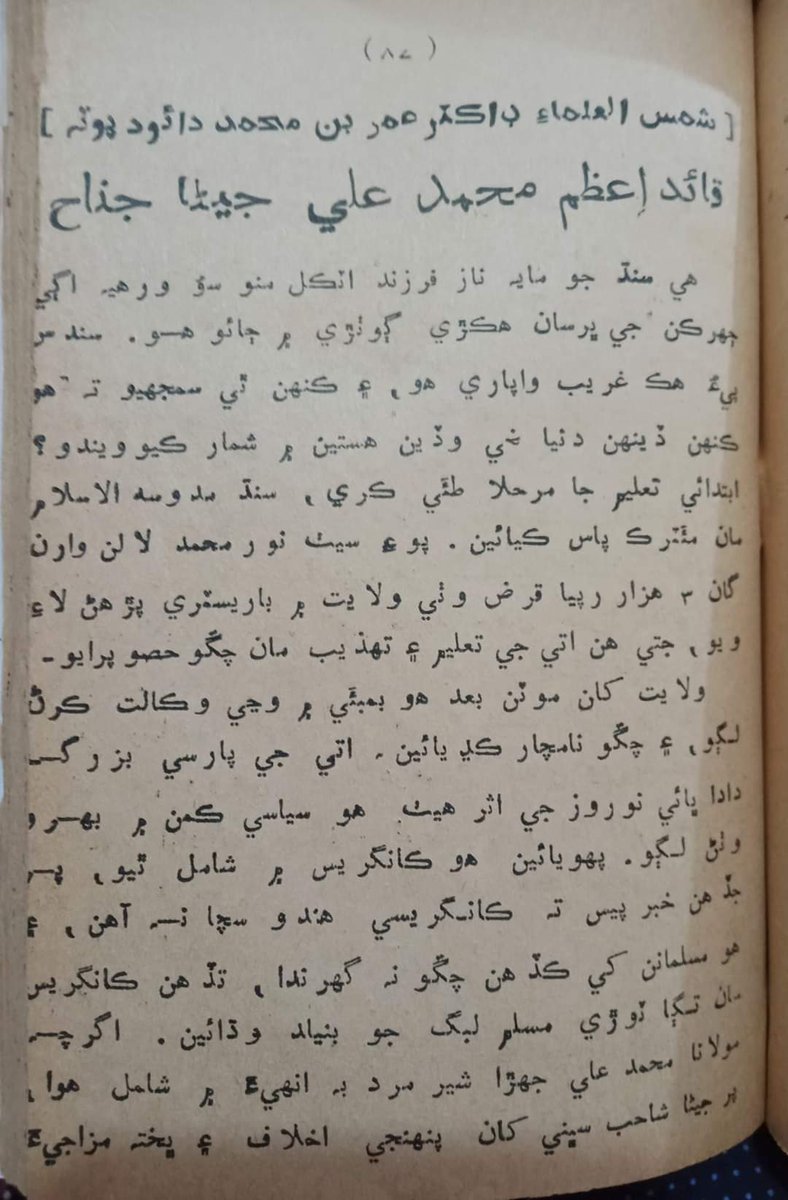 ( ۸۷ )
[ شمس العلماءِ ڊاڪٽر عمر بن محمد دائود پوٽہ ]
قائد اِعظم محمد علي جيڻا جناح
هي سنڌ جو مايہ ناز فرزند اٽڪل منو سؤ ورهيہ اڳي
جهرڪن جي ڀرسان هڪڙي ڳوٺڙي ۾ ڄائو هو. سندس
پيءُ هڪ غريب واپاري هو، ۽ ڪنهن ٿي سمجهيو تہ هو
ڪنهن ڏينهن دنيا جي وڏين هستين ۾ شمار ڪيو ويندو؟
ابتدائي تعليم جا مرحلا طئي ڪري، سنڌ مدرسہ الاسلام
مان مئٽرڪ پاس ڪيائين. پوءِ سيٺ نور محمد لالن وارن
کان ۳ هزار رپيا قرض وٺي ولايت ۾ باريسٽري پڙهڻ لاءِ
ويو، جتي هن اتي جي تعليم ۽ تهذيب مان چڱو حصو پرايو۔
ولايت کان موٽڻ بعد هو بمبئي ۾ وڃي وڪالت ڪرڻ
لڳو، ۽ چڱو نامچار ڪڍيائين۔ اتي جي پارسي بزرگ
دادا ڀائي نوروز جي اثر هيٺ هو سياسي ڪمن ۾ بهرو
وٺڻ لڳو. پهريائين هو ڪانگريس ۾ شامل ٿيو، پر
جڏهن خبر پيس تہ ڪانگريسي هندو سچا نہ آهن، ۽
هو مسلمانن کي ڪڏهن چڱو نہ گهرندا، تڏهن ڪانگريس
مان تڳا ٽوڙي مسلم ليگ جو بنياد وڌائين. اگرچہ
مولانا محمد علي جهڙا شير مرد بہ انهيءَ ۾ شامل هوا،
پر جيڻا صاحب سڀني کان پنهنجي اخلاق ۽ پختہ مزاجيءَ